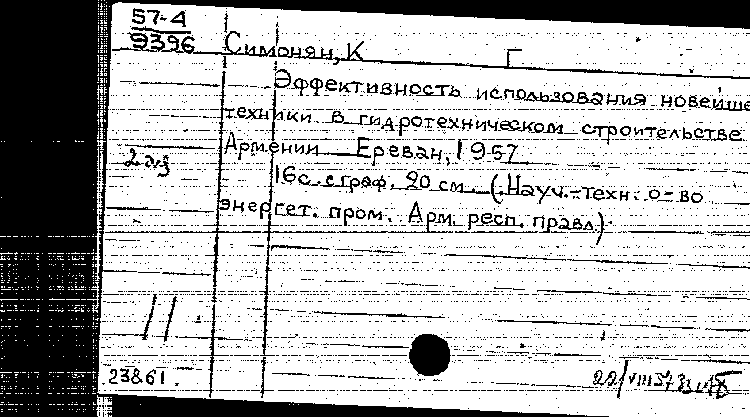 57-4
9396
Симонян, К Г
Эффективность использования новейше
техники в гидротехническом строительстве
Армении Ереван, 1957
2 экз
16с. с граф. 20 см. (Науч.-техн. о-во
энергет. пром. Арм. респ. правл.)
11
23861.
22/VIII 57